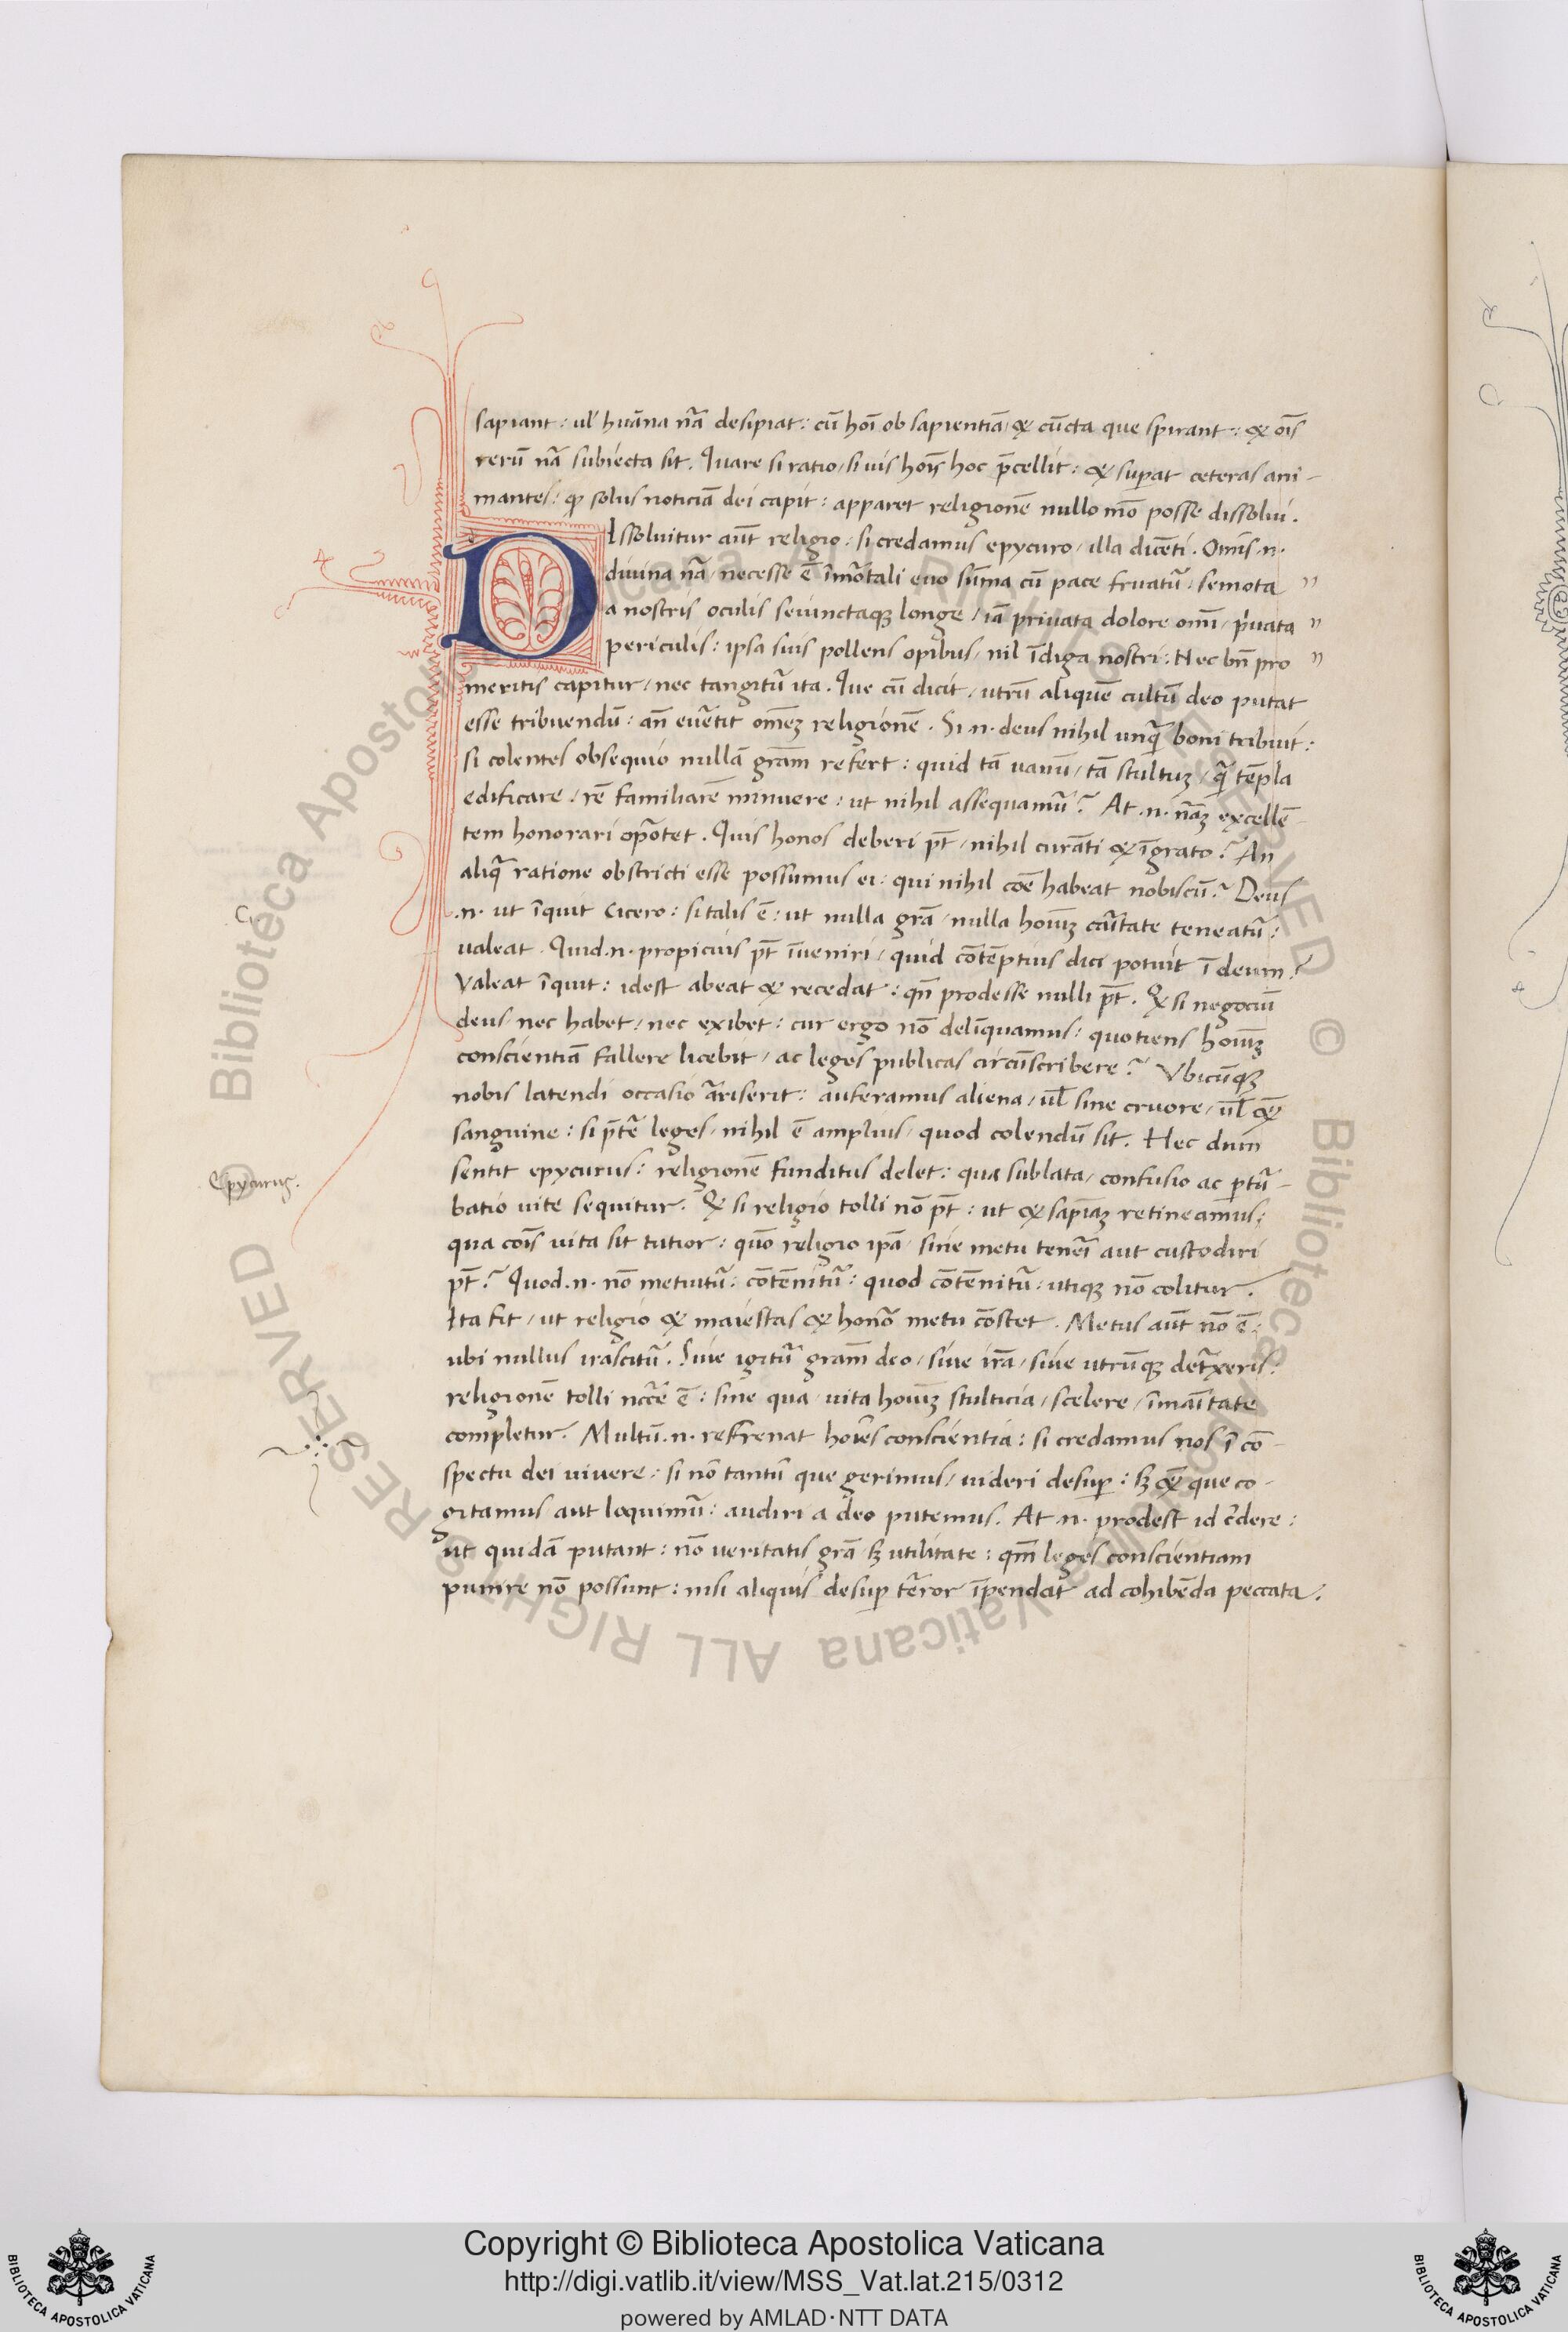 sapiant: ul' huāna nā desipiat: cū hoī ob sapientiā & cūcta que spirant: & oīs
rerū nā subiecta sit. Quare si ratio / si uis hoīs hoc p̄cellit: & supat ceteras ani-
mantes: qp solus noticiā dei capit: apparet religionē nullo mō posse dissolui.
DIssoluitur aūt religio / si credamus epycuro / illa dicēti. Omīs .n.
diuina nā / necesse ē īmōtali euo sūma cū pace fruatū / semota "
a nostris oculis seiunctaqȝ longe / iā priuata dolore omī / p̓uata "
periculis: ipsa suis pollens opibus / nil īdiga nostri: Nec bn̄ pro "
meritis capitur / nec tangitū ita. Que cū dicit / utrū aliquē cultū deo putat
esse tribuendū: an̄ euētit om̄eȝ religionē. Si .n. deus nihil unq̄ boni tribuit:
si colentes obsequio nullā grām refert: quid tā uanū / tā stultuȝ / q̄ tēpla
edificare / rē familiarē minuere: ut nihil assequamū? At .n. nāȝ excellē-
tem honorari opōtet. Quis honos deberi pt̄ / nihil curāti & īgrato? An
aliq̄ ratione obstricti esse possumus ei: qui nihil coē habeat nobiscū? Deus
.n. ut īquit Cicero: si talis ē: ut nulla grā / nulla hoīuȝ cāitate teneatū:
ualeat. Quid .n. propicius pt̄ īueniri / quid cōtēptius dici potuit ī deum?
Valeat īquit: idest abeat & recedat: qn̄ prodesse nulli pt̄. Qd si negociū
deus nec habet / nec exibet: cur ergo nō delīquamus: quotiens hoīuȝ
conscientiā fallere licebit / ac leges publicas circūscribere? Vbicūqȝ
nobis latendi occasio āriserit: auferamus aliena / ul̄ sine cruore / ul̄
sanguine: si p̄tē leges / nihil ē amplius / quod colendū sit. Hec dum
sentit epycurus: religionē funditus delet: qua sublata / confusio ac ptū-
Epycurus.
batio uite sequitur. Qd si religio tolli nō pt̄: ut & sapīaȝ retineamus:
qua coīs uita sit tutior: quō religio ipā / sine metu tenēī aut custodiri
pt̄? Quod .n. nō metuitū: cōtēnitū: quod cōtēnitū: utiqȝ nō colitur.
Ita fit / ut religio & maiestas & honō metu cōstet. Metus aūt nō ē:
ubi nullus irascitū. Siue igitū grām deo / siue irā / siue utrūqȝ detxeris:
religionē tolli nccē ē: sine qua / uita hoīuȝ stulticia / scelere / īmāitate
completur. Multū .n. refrenat hoīes conscientia: si credamus nos ī cō-
spectu dei uiuere: si nō tantū que gerimus / uideri desup: sȝ que co-
gitamus aut loquimū: audiri a deo putemus. At .n. prodest id c̄dere:
ut quidā putant: nō ueritatis grā sȝ utilitate: qm̄ leges conscientiam
punire nō possunt: nisi aliquis desup tēror īpendat ad cohibēda peccata:
Copyright © Biblioteca Apostolica Vaticana
http://digi.vatlib.it/view/MSS_Vat.lat.215/0312
powered by AMLAD·NTT DATA
BIBLIOTECA APOSTOLICA VATICANA
BIBLIOTECA APOSTOLICA VATICANA
© Biblioteca Apostolica Vaticana ALL RIGHTS RESERVED
© Biblioteca Apostolica Vaticana ALL RIGHTS RESERVED